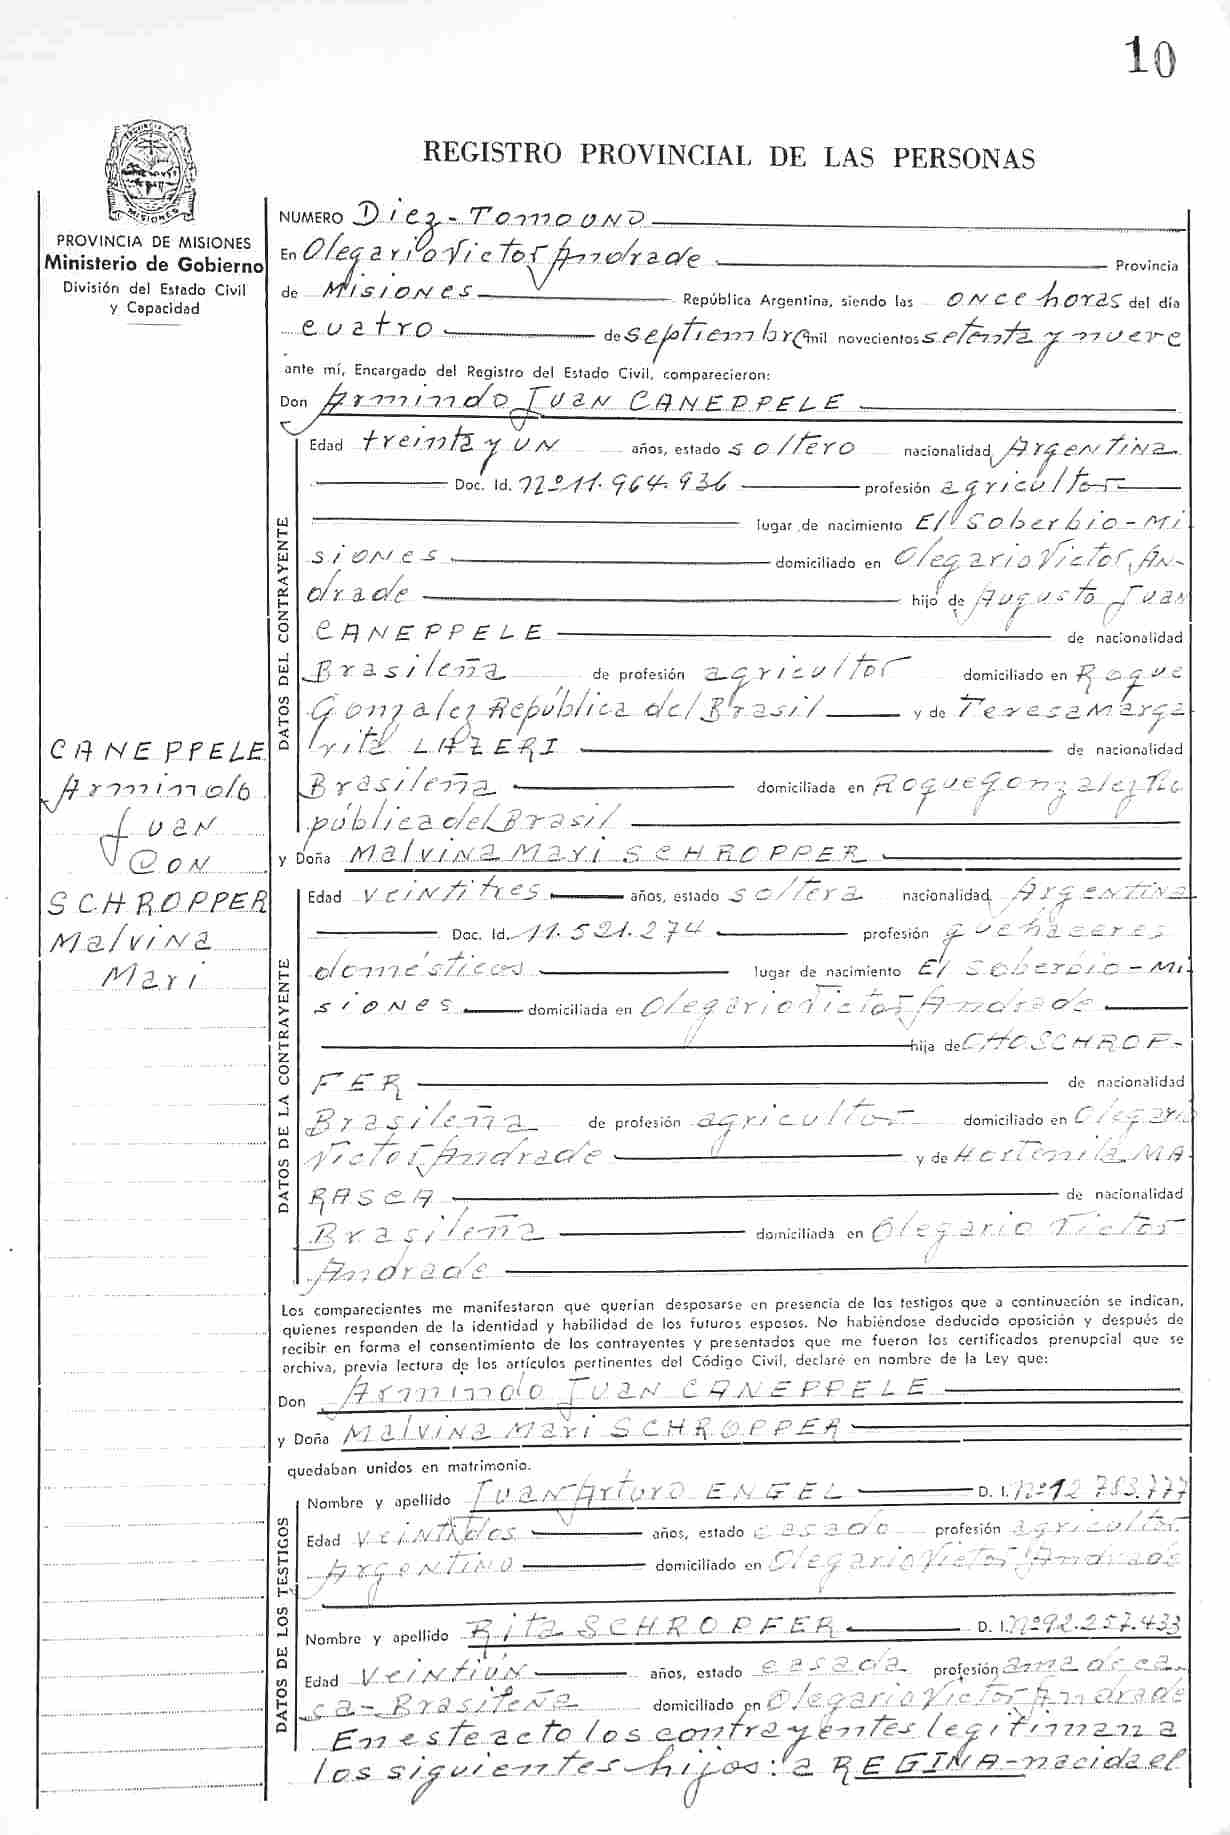 10
REGISTRO PROVINCIAL DE LAS PERSONAS
MISIONES
PROVINCIA DE MISIONES
Ministerio de Gobierno
División del Estado Civil
y Capacidad
CANEPPELE
Armindo
Juan
Con
SCHROPPER
Malvina
Mari
NUMERO Diez - Tomo UNO
En Olegario Victor Andrade Provincia
de Misiones República Argentina, siendo las once horas del día
cuatro de septiembre mil novecientos setenta y nueve
ante mí, Encargado del Registro del Estado Civil, comparecieron:
Don Armindo Juan CANEPPELE
DATOS DEL CONTRAYENTE
Edad treinta y un años, estado soltero nacionalidad Argentina
Doc. Id. nº 11.964.936 profesión agricultor
lugar de nacimiento El Soberbio - Mi
siones domiciliado en Olegario Victor An-
drade hijo de Augusto Juan
CANEPPELE de nacionalidad
Brasileña de profesión agricultor domiciliado en Roque
Gonzalez República del Brasil y de Teresa Marga
rita LAZERI de nacionalidad
Brasileña domiciliada en Roque Gonzalez Re
pública del Brasil
y Doña Malvina Mari SCHROPPER
DATOS DE LA CONTRAYENTE
Edad veintitres años, estado soltera nacionalidad Argentina
Doc. Id. 11.521.274 profesión quehaceres
domésticos lugar de nacimiento El Soberbio - Mi
siones domiciliada en Olegario Victor Andrade
hija de OTTO SCHROP-
FER de nacionalidad
Brasileña de profesión agricultor domiciliado en Olegario
Victor Andrade y de Hortenila MA
RASCA de nacionalidad
Brasileña domiciliada en Olegario Victor
Andrade
Los comparecientes me manifestaron que querían desposarse en presencia de los testigos que a continuación se indican,
quienes responden de la identidad y habilidad de los futuros esposos. No habiéndose deducido oposición y después de
recibir en forma el consentimiento de los contrayentes y presentados que me fueron los certificados prenupcial que se
archiva, previa lectura de los artículos pertinentes del Código Civil, declaré en nombre de la Ley que:
Don Armindo Juan CANEPPELE
y Doña Malvina Mari SCHROPPER
quedaban unidos en matrimonio.
DATOS DE LOS TESTIGOS
Nombre y apellido Juan Arturo ENGEL D. I. nº 12.783.777
Edad veintidos años, estado casado profesión agricultor
Argentino domiciliado en Olegario Victor Andrade
Nombre y apellido Rita SCHROPFER D. I. nº 92.257.433
Edad Veintiún años, estado casada profesión ama de ca
sa - Brasileña domiciliado en Olegario Victor Andrade
En este acto los contrayentes legitiman a
los siguientes hijos: a REGINA - nacida el